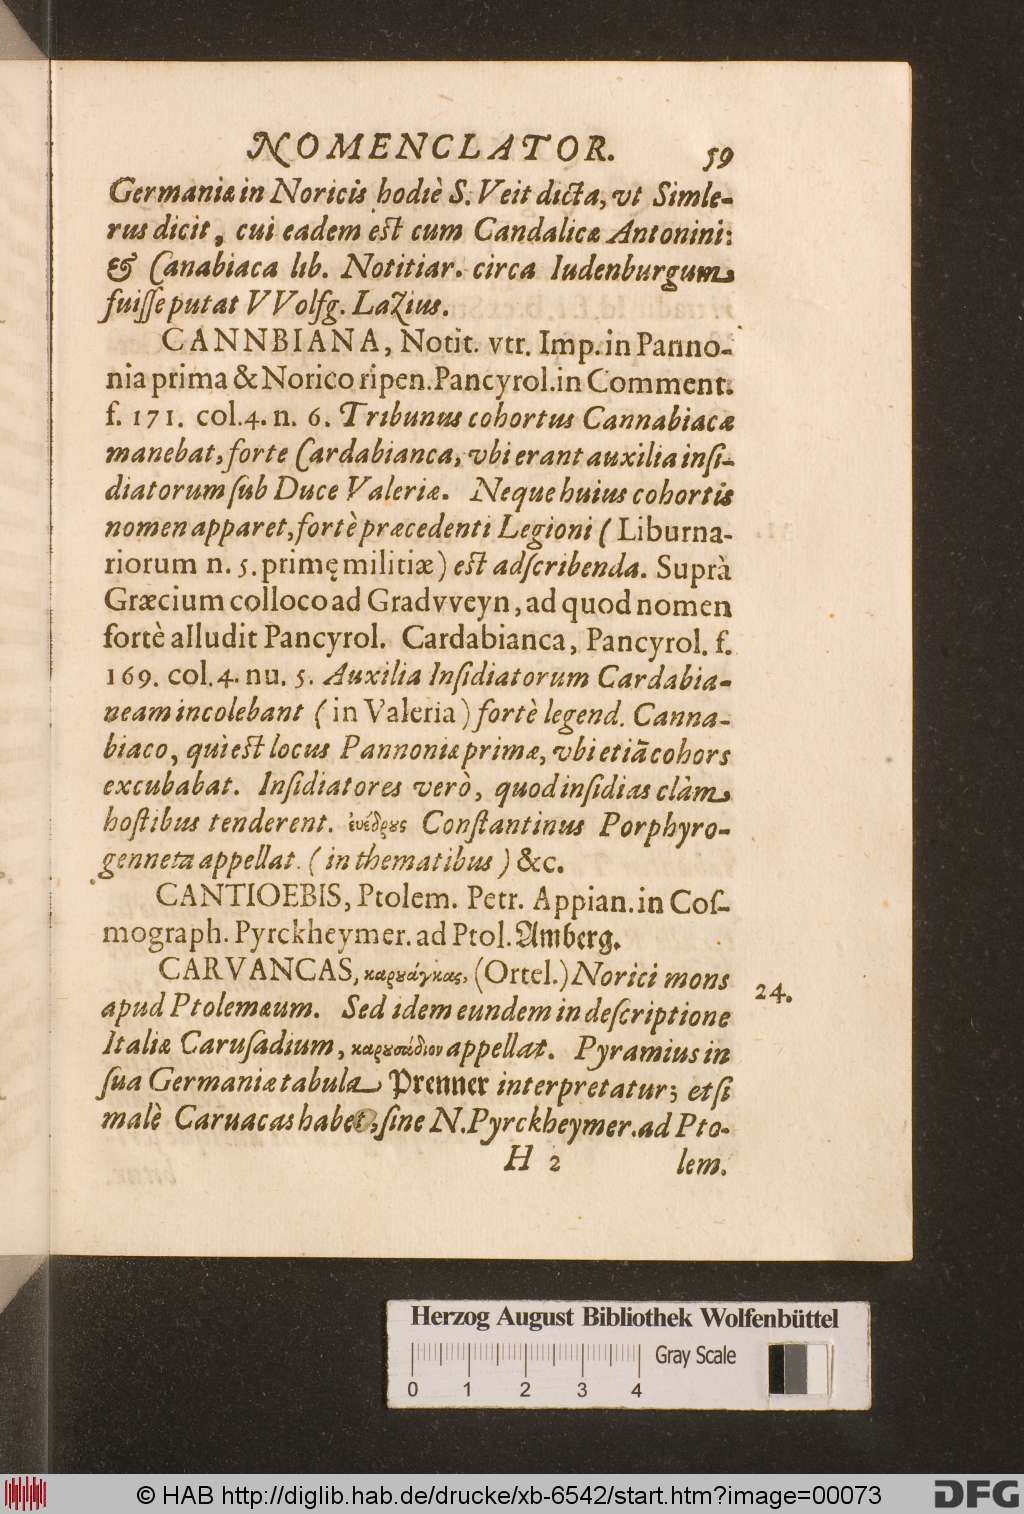 NOMENCLATOR. 59
Germaniæ in Noricis hodiè S. Veit dicta, vt Simle-
rus dicit, cui eadem est cum Candalicæ Antonini:
& Canabiaca lib. Notitiar. circa Iudenburgum
fuiſſe putat VVolfg. Lazius.
CANNBIANA, Notit. vtr. Imp. in Panno-
nia prima & Norico ripen. Pancyrol. in Comment.
f. 171. col. 4. n. 6. Tribunus cohortus Cannabiacæ
manebat, forte Cardabianca, vbi erant auxilia inſi-
diatorum ſub Duce Valeriæ. Neque huius cohortis
nomen apparet, fortè præcedenti Legioni ( Liburna-
riorum n. 5. primę militiæ) est adſcribenda. Suprà
Græcium colloco ad Gradvveyn, ad quod nomen
fortè alludit Pancyrol. Cardabianca, Pancyrol. f.
169. col. 4. nu. 5. Auxilia Inſidiatorum Cardabia-
neam incolebant ( in Valeria ) fortè legend. Canna-
biaco, qui est locus Pannoniæ primæ, vbi etiã cohors
excubabat. Inſidiatores verò, quod inſidias clàm
hoſtibus tenderent. ἐνέδρους Conſtantinus Porphyro-
genneta appellat. ( in thematibus ) &c.
CANTIOEBIS, Ptolem. Petr. Appian. in Coſ-
mograph. Pyrckheymer. ad Ptol. Amberg.
CARVANCAS, καρουάγκας, (Ortel.) Norici mons
apud Ptolemæum. Sed idem eundem in deſcriptione 24.
Italiæ Caruſadium, καρουσάδιον appellat. Pyramius in
ſua Germaniæ tabula Prenner interpretatur; etſi
malè Caruacas habet, ſine N. Pyrckheymer. ad Pto-
H 2 lem.
Herzog August Bibliothek Wolfenbüttel
Gray Scale
0 1 2 3 4
© HAB http://diglib.hab.de/drucke/xb-6542/start.htm?image=00073
DFG